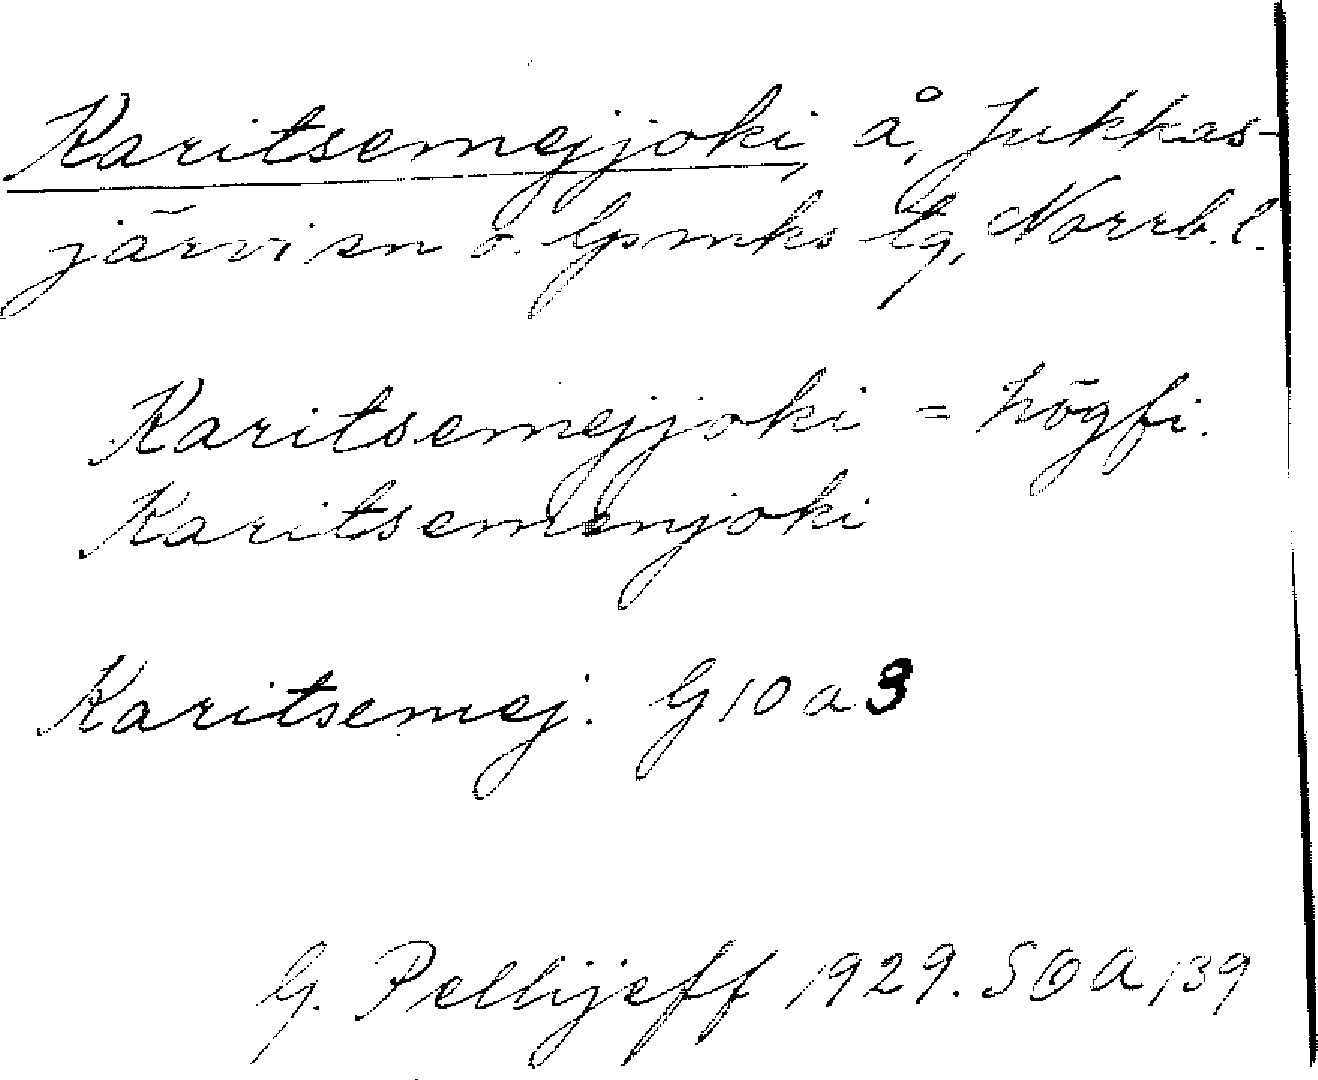 Karitsemejjoki, å, Jukkas-
järvi sn o. Gpmks tg, Norrb. l.
Karitsemejjoki = högfi.
Karitsemenjoki
Karitsemej. G 10 a 3
G. Pellijeff 1929. SOA 139